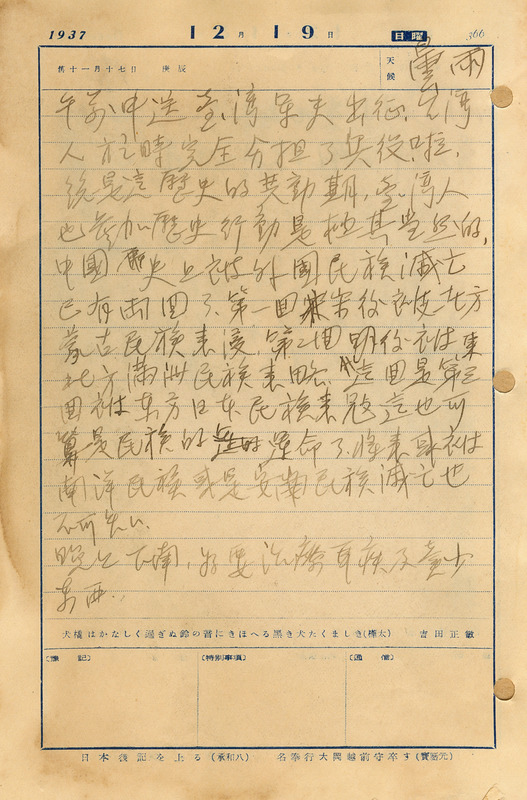 1937 12月19日 日曜 366
第十一月十七日 庚辰 天候 曇雨
午前中送臺灣軍夫出征.台灣
人於時完全分担了兵役啦.
總是這歷史的其動期,臺灣人
也參加歷史行動是極其當然的,
中國歷史上被外國民族滅亡
已有兩回了.第一回宋後被北方
蒙古民族来侵.第二回明後被東
北方滿洲民族来略.這回是第三
回被東方日本民族来
算是民族的運命了.將来或被
南洋民族或是安南民族滅亡也
不可知
晚上下南,好要治療耳疾及
東西.
犬橇はかなしく過ぎぬ鈴の音にきほへる黑き犬たくましき(樺太) 吉田正敏
〔雜記〕 〔特別事項〕 〔通信〕
日本後記を上る(承和八) 名奉行大岡越前守卒す(寶曆元)